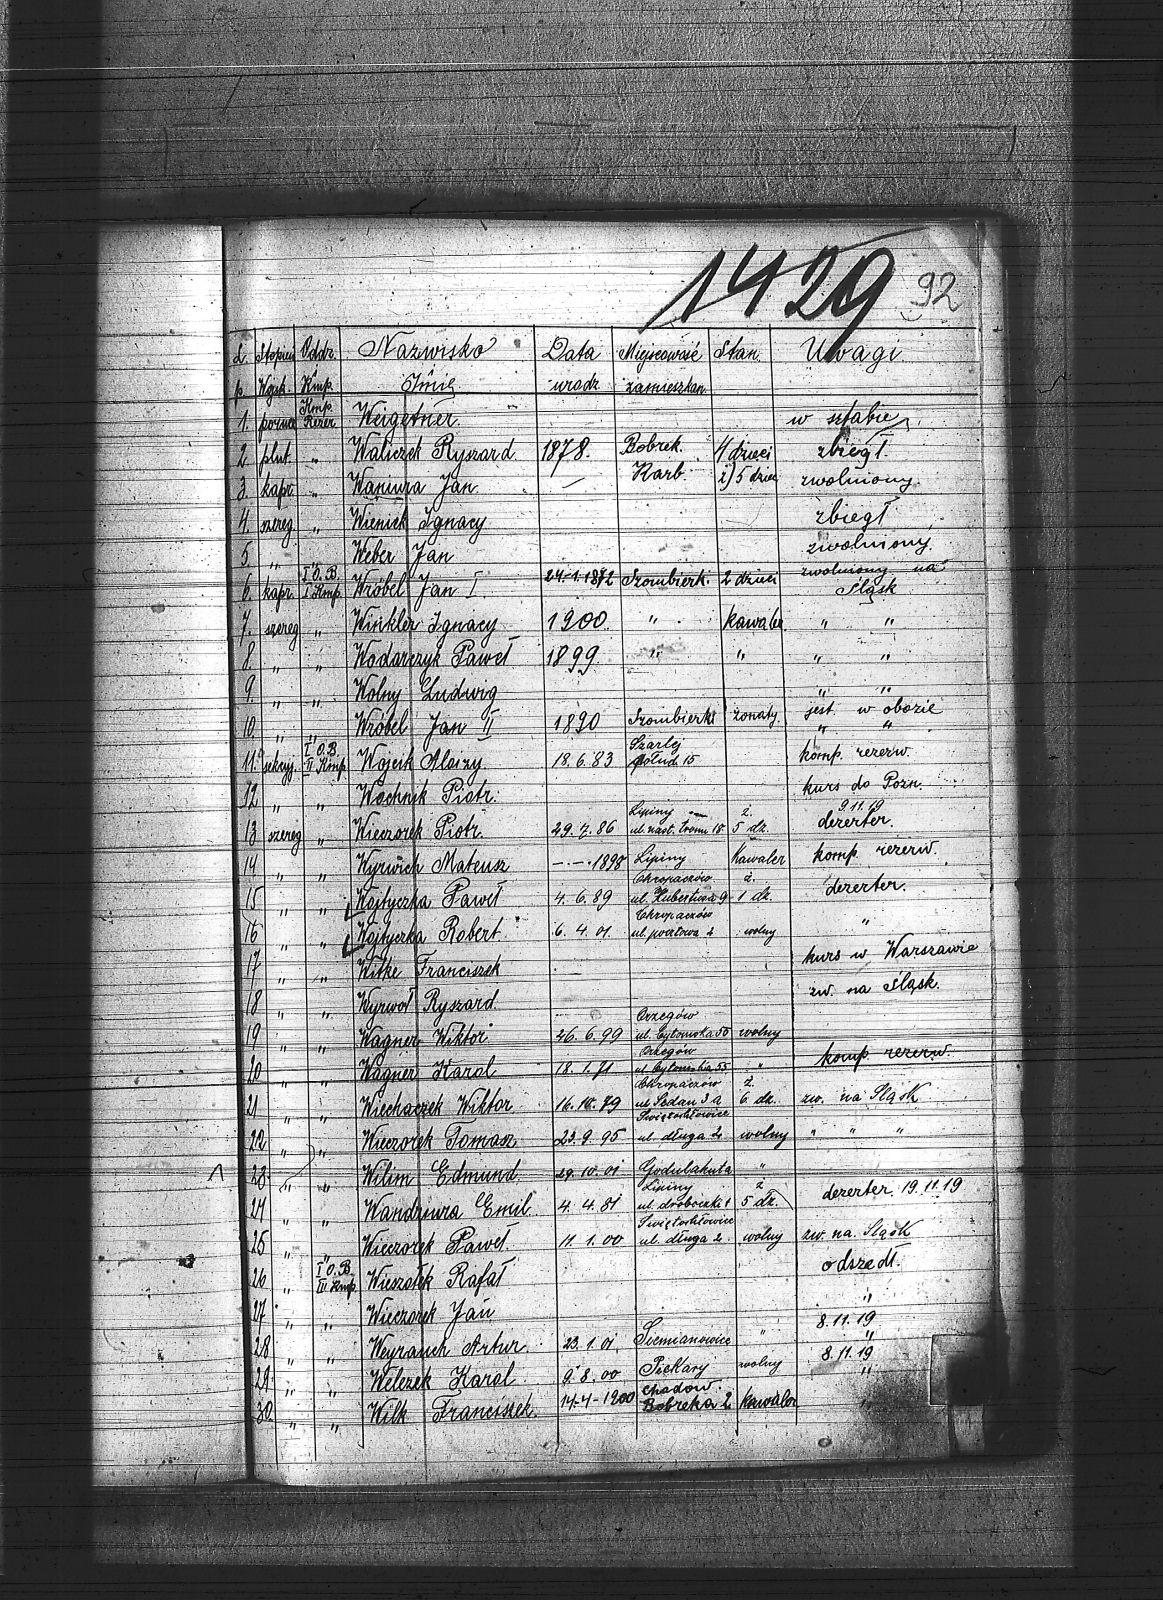 1429 92
L. Stopień Oddz. Nazwisko Data Miejscowość Stan Uwagi
p. Wojsk. Kmp. Imię urodz. zamieszkan.
1. Kmp. Rezer. Weigetner w sztabie
2. plut. " Waliczek Ryszard 1878. Bobrek 4 dzieci zbiegł.
3. kapr. " Waniura Jan. — Karb. ż) 5 dzieci zwolniony.
4. szereg. " Wienick Ignacy zbiegł
5. " Weber Jan zwolniony.
6. kapr. I O.B. I Kmp. Wróbel Jan I. 24.1.1872 Szombierk. 2 dzieci zwolniony na Śląsk
7. szereg " Winkler Ignacy 1900. " kawaler. " "
8. " " Wodarczyk Paweł 1899 " " " "
9. " " Wolny Ludwig " "
10. " " Wróbel Jan II 1890 Szombierki żonaty jest w obozie " "
11. I O.B. II Kmp. Wojcik Aloizy 18.6.83 Szarlej 15 komp. rezerw.
12 " " Wochnik Piotr. kurs do Pozn.
13 szereg " Wieczorek Piotr. 29.7.86 Lipiny ul. 18 ż. 5 dz. 9.11.19 dezerter.
14 " " Wyrwich Mateusz —.—.1898 Lipiny Kawaler komp. rezerw.
15 " " Wojtyczka Paweł 4.6.89 Chropaczów ul. Hubertusa 9 ż. 1 dz. dezerter.
16 " " Wojtyczka Robert. 6.4.01. Chropaczów ul. pocztowa 2 wolny "
17 " " Witke Franciszek — kurs w Warszawie
18 " " Wyrwoł Ryszard. zw. na Śląsk.
19 " " Wagner Wiktor 26.6.99 Orzegów ul. Bytomska 55 wolny
20 " " Wagner Karol 18.1.71 Orzegów ul. Bytomska 55 " komp. rezerw.
21 " " Wiechaczek Wiktor 16.10.79 Chropaczów ul. Sedan 3a ż. 6 dz. zw. na Śląsk
22. " " Wieczorek Tomasz 23.9.95 Świętochłowice ul. długa 2. wolny " " "
23. " " Wilim Edmund. 29.10.01 Godulahuta "
24 " " Wandziura Emil. 4.4.81 Lipiny ul. 1 ż 5 dz. dezerter. 19.11.19
25 " " Wieczorek Paweł. 11.1.00 Świętochłowice ul. długa 2. wolny zw. na Śląsk
26 " I O.B. III Kmp. Wieszołek Rafał odszedł.
27 " " Wieczorek Jan " 8.11.19
28 " " Weyrauch Artur 23.1.01. Siemianowice " " 8.11.19
29 " " Welczek Karol 9.8.00 Piekary wolny "
30 " " Wilk Franciszek. 14.4.1900 Bobreka 2 kawaler "